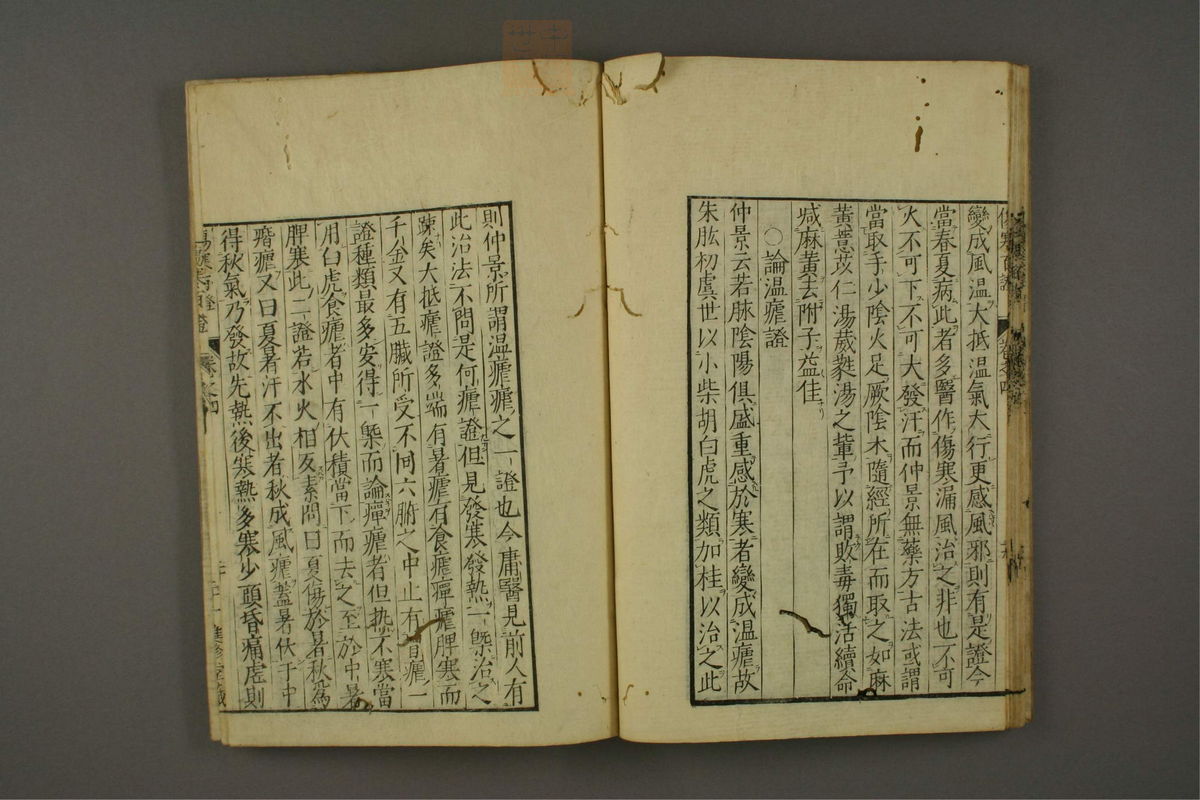 變成風溫大抵溫氣大行更感風邪則有是證今
當春夏病此者多醫作傷寒漏風治之非也不可
火不可下不可大發汗而仲景無藥方古法或謂
當取手少陰火足厥陰木隨經所在而取之如麻
黃薏苡仁湯葳蕤湯之輩予以謂敗毒獨活續命
减麻黃去附子益佳
○論溫瘧證
仲景云若脉陰陽俱盛重感於寒者變成溫瘧故
朱肱初虞世以小柴胡白虎之類加桂以治之此
則仲景所謂溫瘧瘧之一證也今庸醫見前人有
此治法不問是何瘧證但見發寒發熱一槩治之
踈矣大抵瘧證多端有暑瘧有食瘧癉瘧脾寒而
千金又有五臟所受不同六腑之中止有胃瘧一
證種類最多安得一槩而論癉瘧者但熱不寒當
用白虎食瘧者中有伏積當下而去之至於中暑
脾寒此二證若水火相反素問曰夏傷於暑秋爲
痎瘧又曰夏暑汗不出者秋成風瘧蓋暑伏于中
得秋氣乃發故先熱後寒熱多寒少頭昏痛虛則
傷寒百證 卷之四